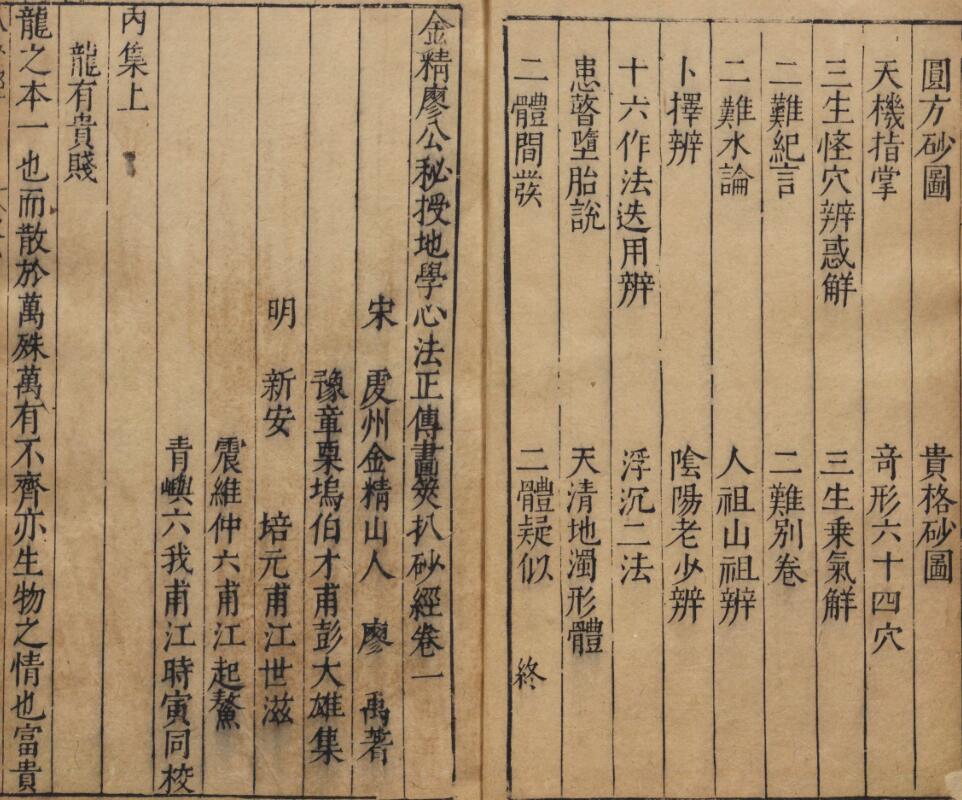 圓方砂圖　貴格砂圖
天機指掌　竒形六十四穴
三生怪穴辨惑解　三生乗氣解
二難紀言　二難別卷
二難水論　人祖山祖辨
卜擇辨　陰陽老少辨
十六作法迭用辨　浮沉二法
患瞽墮胎說　天清地濁形體
二體間發　二體疑似　終
金精廖公秘授地學心法正傳畫筴扒砂經卷一
宋　虔州金精山人　廖　禹著
豫章栗塢伯才甫彭大雄集
明　新安　培元甫江世滋
震維仲六甫江起鰲
青嶼六我甫江時寅同校
內集上
龍有貴賤
龍之本一也而散於萬殊萬有不齊亦生物之情也富貴